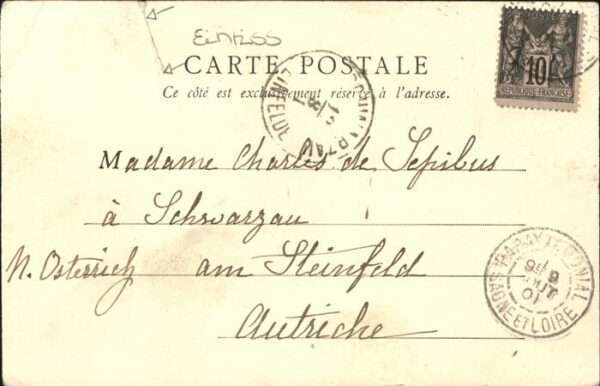 EINRISS
CARTE POSTALE
Ce côté est exclusivement réservé à l'adresse.
10
REPUBLIQUE FRANÇAISE
Madame Charles de Sepibus
à Schwarzau
N. Osterreich am Steinfeld
Autriche
PARAY-LE-MONIAL
SAONE ET LOIRE